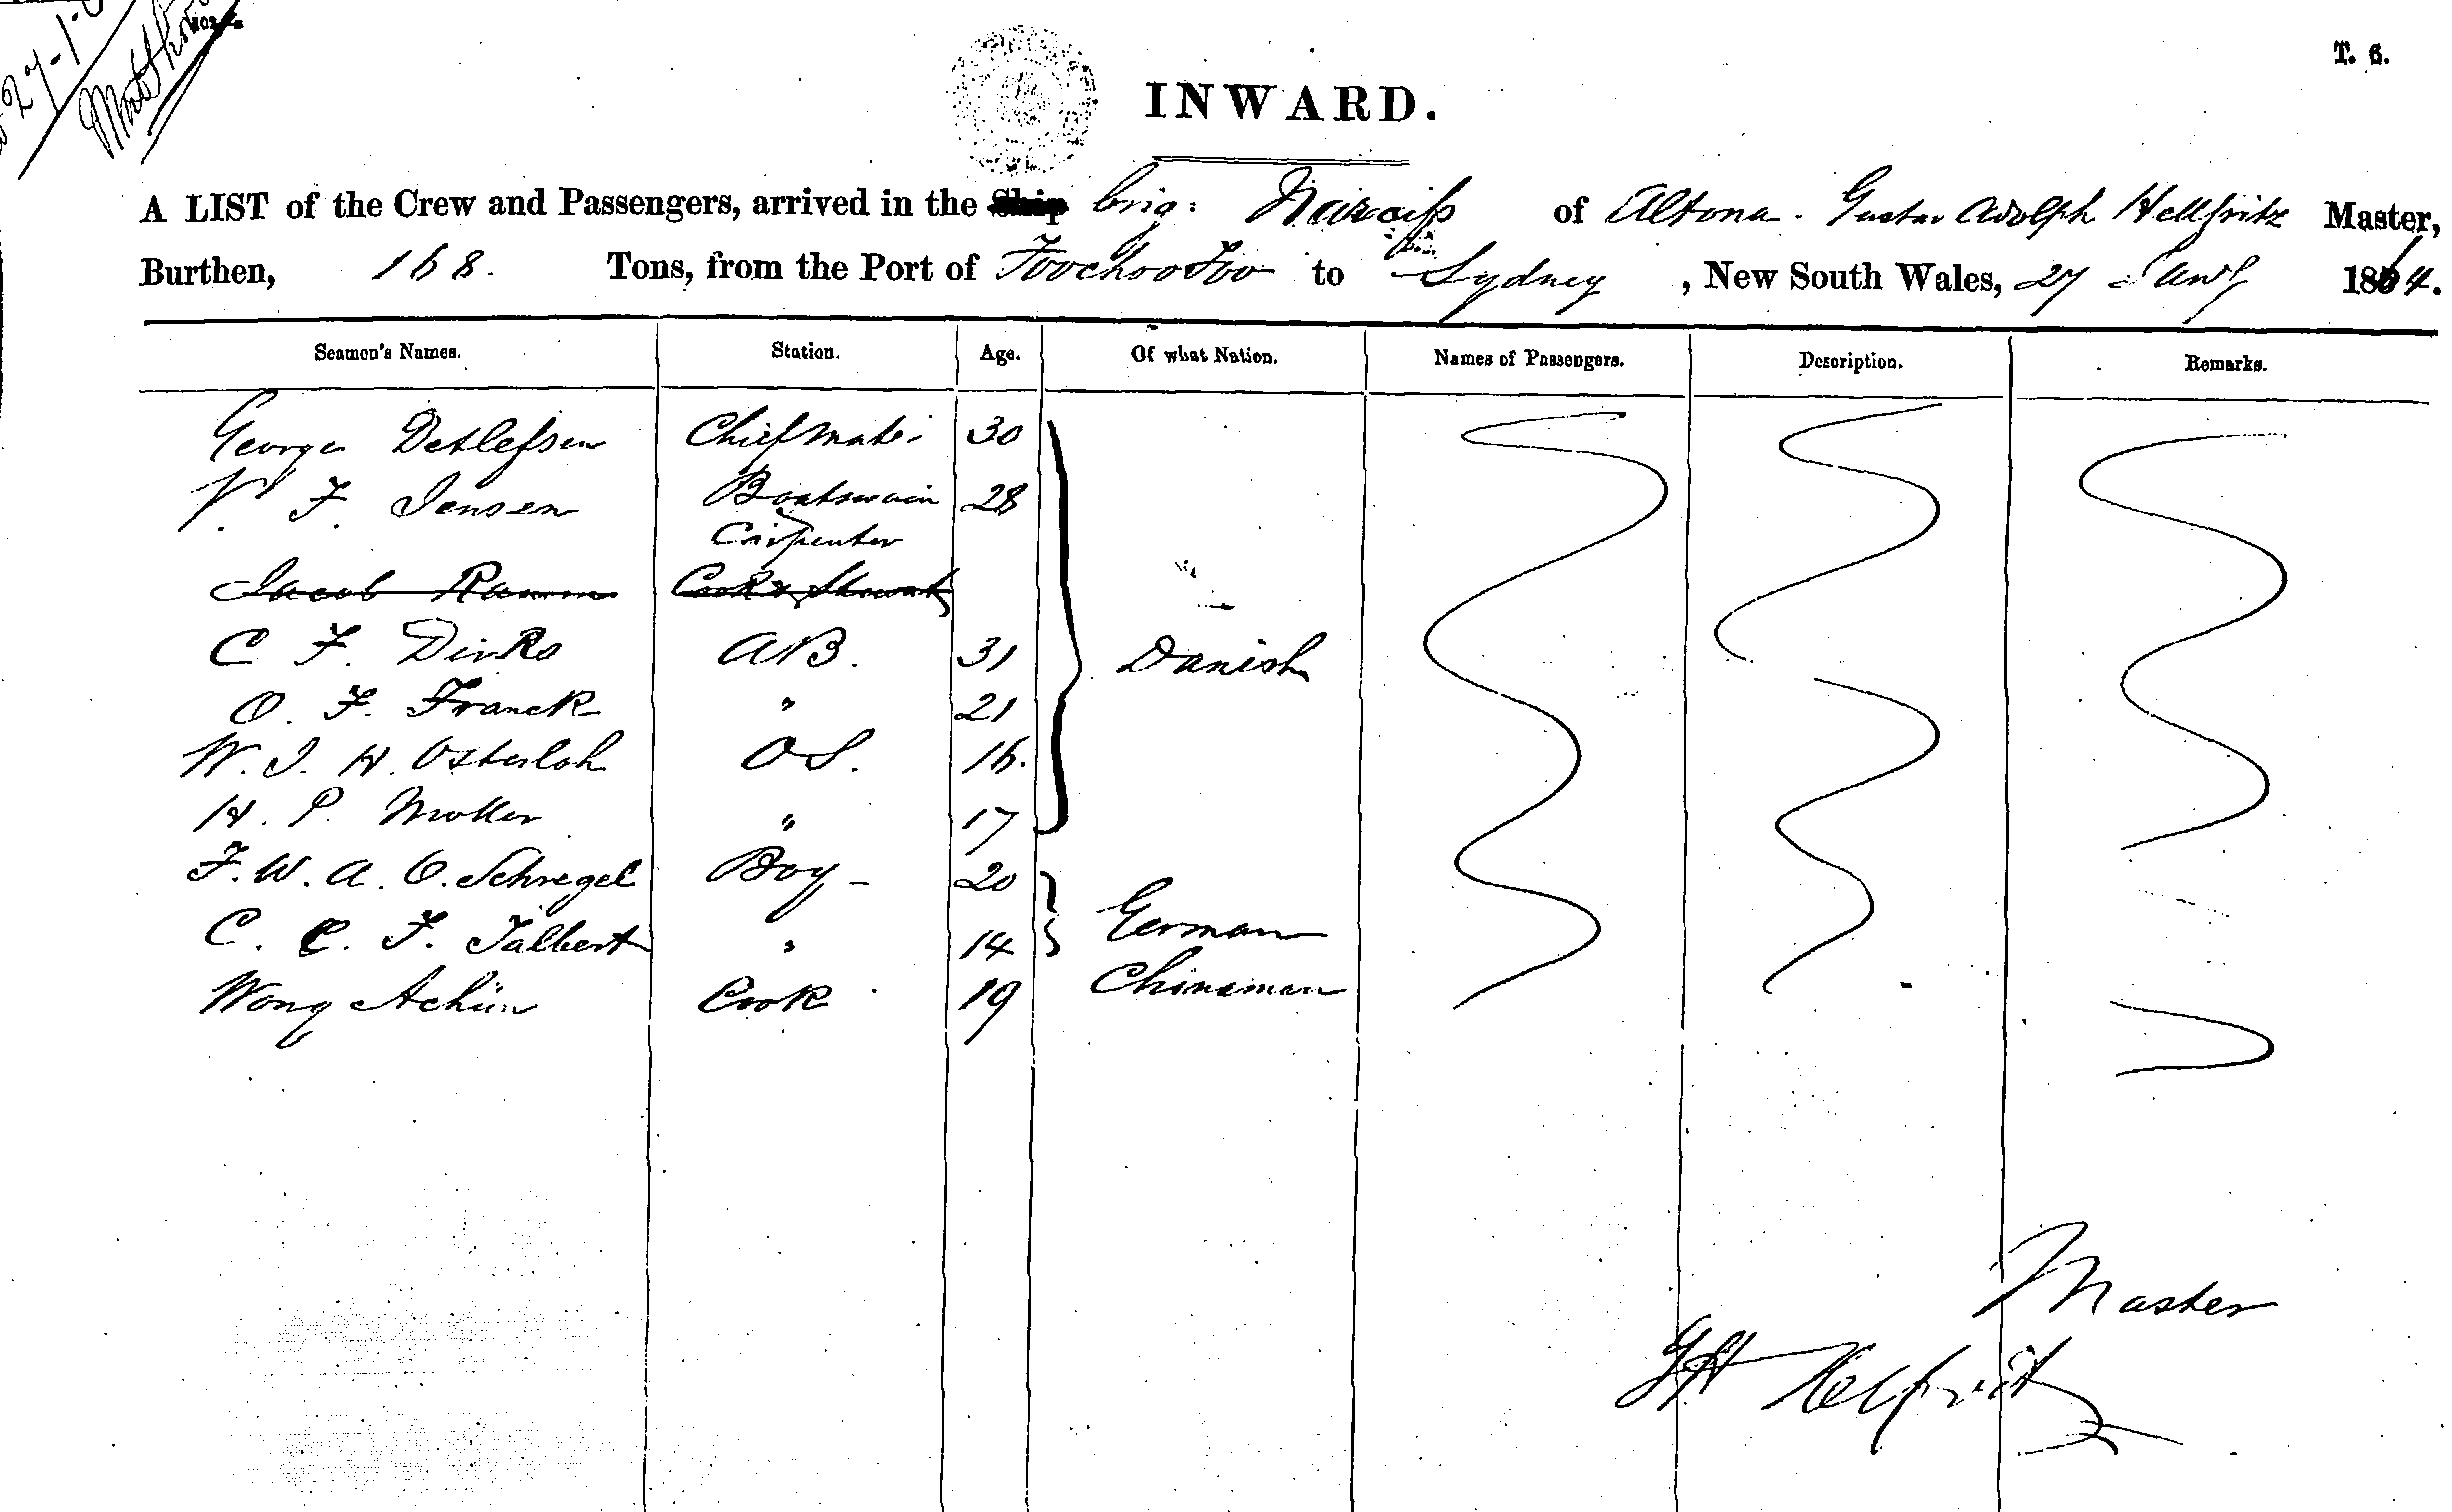 27-1-6
T. 6.
INWARD.
A LIST of the Crew and Passengers, arrived in the Ship brig: Narciss of Altona. Gustav Adolph Hellfritz Master,
Burthen, 168. Tons, from the Port of FoochooFoo to Sydney, New South Wales, 27 Jany 1864.
Seamen's Names. Station. Age. Of what Nation. Names of Passengers. Description. Remarks.
George Detlefsen Chief mate. 30
F. Jensen Boatswain 28
Carpenter
Jacob Ramm Cook & Steward
C F. Dirks AB. 31 Danish
O. F. Franck " 21
W. J. H. Osterloh OS. 16.
H. P. Moller " 17
F. W. A. O. Schregel Boy - 20
C. C. F. Jalbert " 14 German
Wong Achün Cook 19 Chinaman
Master